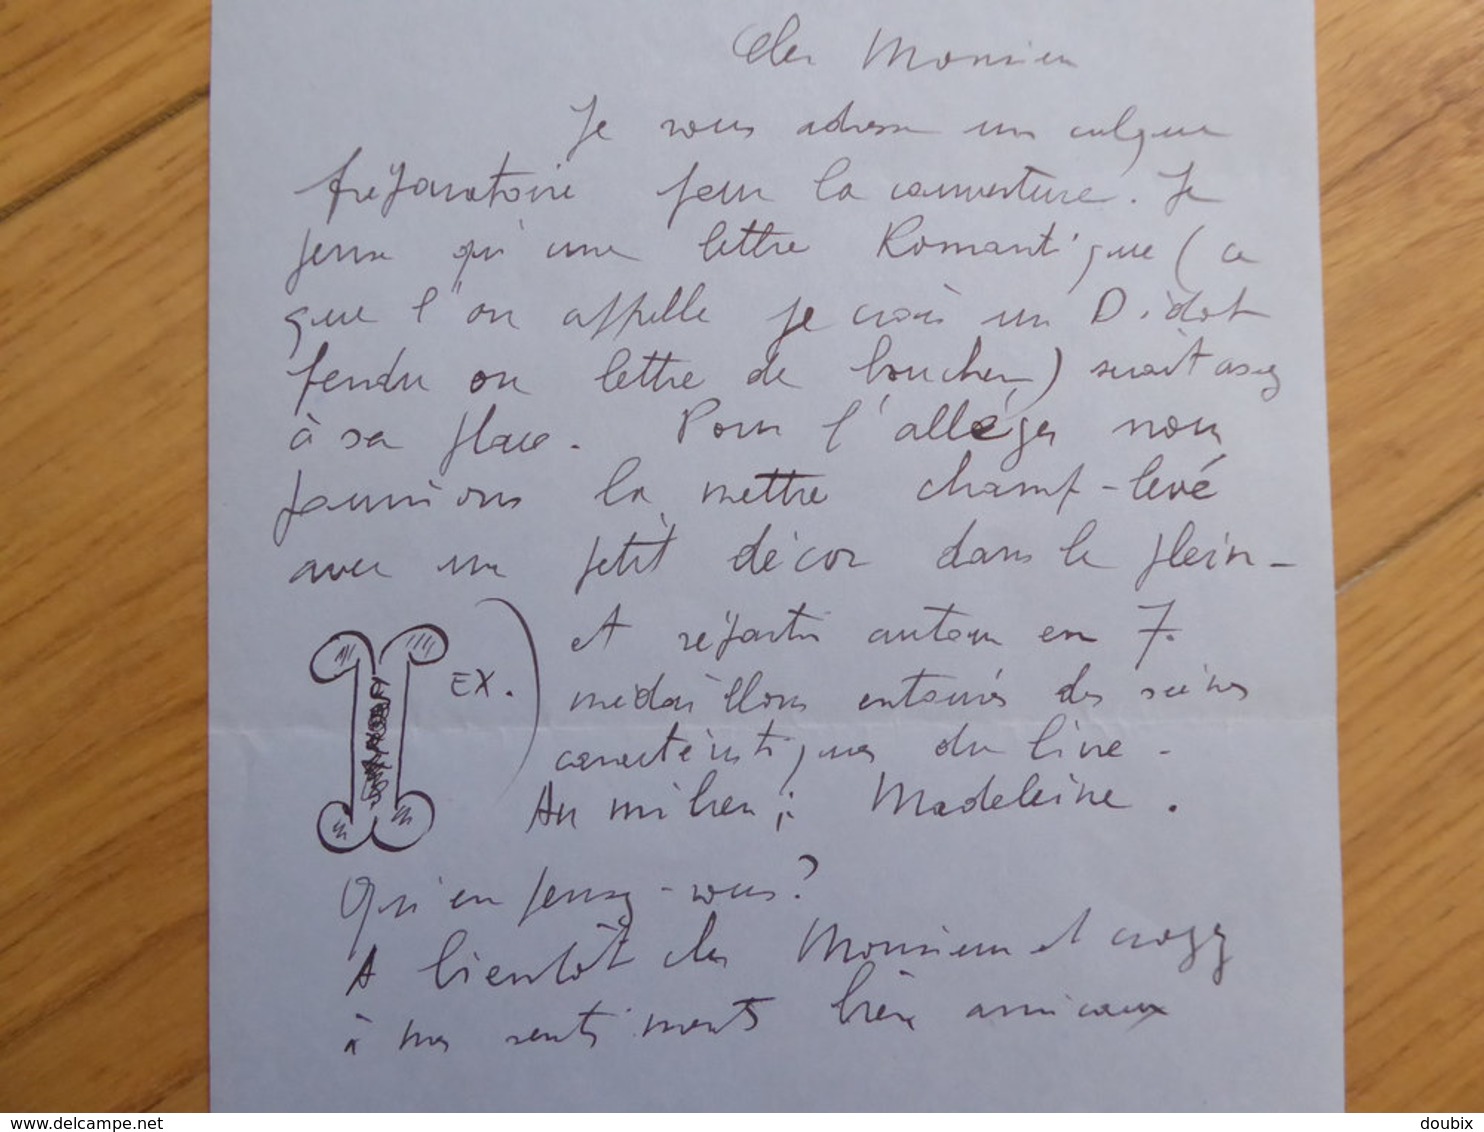 Cher Monsieur
Je vous adresse un calque
préparatoire pour la couverture. Je
pense qu'une lettre Romantique (ce
que l'on appelle je crois un Didot
fendu ou lettre de boucher) serait assez
à sa place. Pour l'alléger nous
pourrions la mettre champ-levé
avec un petit décor dans le plein -
EX.
et répartir autour en 7.
médaillons entourés des scènes
caractéristiques du livre -
Au milieu ; Madeleine.
Qu'en pensez-vous ?
A bientôt cher Monsieur et croyez
à mes sentiments bien amicaux
delcampe.net
doubix